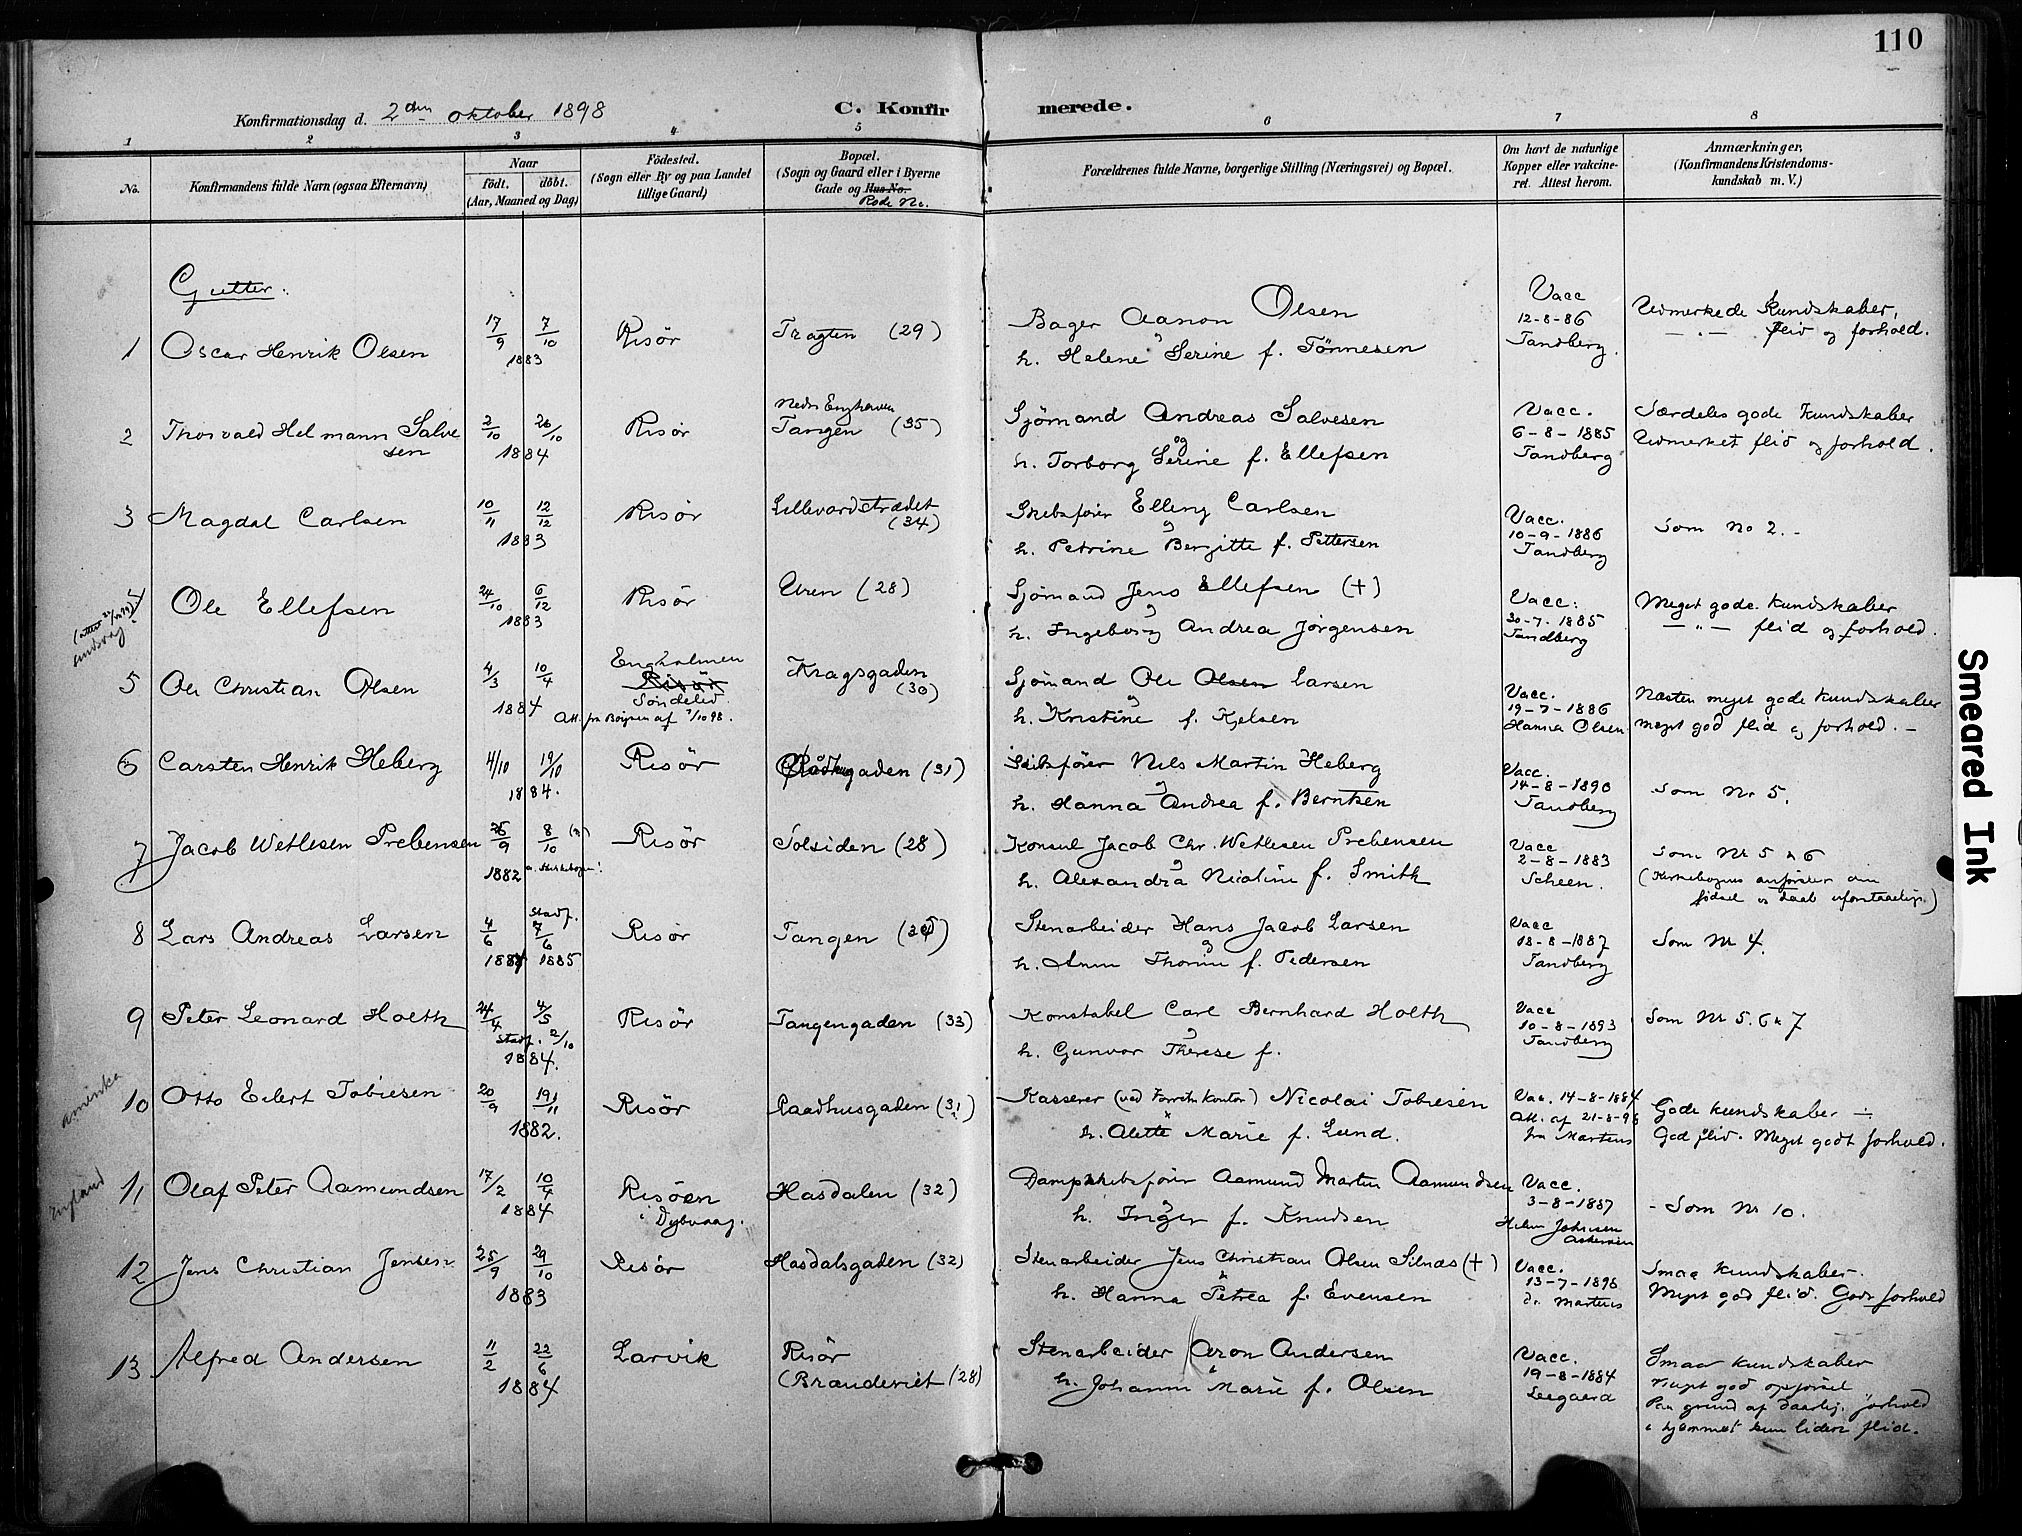 110
Konfirmationsdag d. 2den oktober 1898
C. Konfirmerede.
1 2 3 4 5 6 7 8
No.
Konfirmandens fulde Navn (ogsaa Efternavn)
Naar
født. døbt.
(Aar, Maaned og Dag)
Fødested.
(Sogn eller By og paa Landet
tillige Gaard)
Bopæl.
(Sogn og Gaard eller i Byerne
Gade og Hus No.
Rode No.
Forældrenes fulde Navne, borgerlige Stilling (Næringsvei) og Bopæl.
Om havt de naturlige
Kopper eller vakcine-
ret. Attest herom.
Anmærkninger,
(Konfirmandens Kristendoms-
kundskab m. V.)
Gutter.
1 Oscar Henrik Olsen 17/9 7/10 1883 Risör Tragten (29)
Bager Aanon Olsen
og
h. Helene Serine f. Tönnesen
Vacc
12-8-86
Tandberg.
Udmerkede Kundskaber,
— " — flid og forhold.
2 Thorvald Helmann Salve
sen
2/10 26/10 1884 Risør
Nedre Enghaven
Tangen (35)
Sjömand Andreas Salvesen
og
h. Torborg Serine f. Ellefsen
Vacc.
6-8-1885
Tandberg
Særdeles gode Kundskaber
Udmerket flid og forhold.
3 Magdal Carlsen 10/11 12/12 1883 Risør
Lillevardstrædet
(34)
Skibsfører Elling Carlsen
og
h. Petrine Bergitte f. Pettersen
Vacc.
10-9-1886
Tandberg
Som No 2.-
4 Ole Ellefsen 24/10 6/12 1883 Risør Uren (28)
Sjömand Jens Ellefsen (+)
og
h. Ingeborg Andrea Jørgensen
Vacc.
30-7-1885
Tandberg
Meget gode Kundskaber
— " — flid og forhold.
5 Ole Christian Olsen 4/3 10/4 1884
Engholmen
Risør
Søndeled.
Att. fra Böysen af 1/10 98.
Kragsgaden
(30)
Sjömand Ole Olsen Larsen
og
h. Kristine f. Kjelsen
Vacc.
19-7-1886
Hanna Olsen
Næsten meget gode Kundskaber
meget god flid og forhold.-
6 Carsten Henrik Heberg 4/10 19/10 1884. Risør Raadhusgaden (31)
Skibsfører Nils Martin Heberg
og
h. Hanna Andrea f. Berntsen
Vacc.
14-8-1890
Tandberg
Som Nr 5.
7 Jacob Wetlesen Prebensen 26/9 8/10 1882 Risør Solsiden (28)
Konsul Jacob Chr. Wetlesen Prebensen
og
h. Alexandra Nicoline f. Smith
Vacc
2-8-1883
Scheen.
Som Nr 5 & 6
(Kirkebogens anførsler om
fødsel og daab uforstaaelige.)
8 Lars Andreas Larsen 4/6 1884
Stadf.
7/6 1885
Risør Tangen
Stenarbeider Hans Jacob Larsen
og
h. Anne Thorine f. Pedersen
Vacc
18-8-1887
Tandberg
Som Nr 4.
9 Peter Leonard Holth 24/4 4/5
Stadf. 2/10
1884.
Risør Tangengaden (33)
Konstabel Carl Bernhard Holth
og
h. Gunvor Therese f.
Vacc
10-8-1893
Tandberg
Som Nr 5. 6 & 7
amerika
10 Otto Eilert Tobiesen 20/9 19/11 1882. Risør Raadhusgaden (31)
Kasserer Nicolai Tobiesen
&
h. Alette Marie f. Lund.
Vac. 14-8-1884
Att. af 21-8-98
fra Martens
Gode Kundskaber
God flid. Meget godt forhold.
England
11 Olaf Peter Aamundsen 17/2 10/4 1884
Risøen
i Dybvaag.
Hasdalen (32)
Dampskibsfører Aamund Martin Aamundsen
&
h. Inger f. Knudsen
Vacc.
3-8-1887
- Som Nr 10.
12 Jens Christian Jensen 25/9 29/10 1883 Risør Hasdalsgaden (32)
Stenarbeider Jens Christian Olsen Silnæs (+)
&
h. Hanna Petrea f. Evensen
Vacc.
13-7-1898
Dr. Martens
Smaa Kundskaber.
Meget god flid. Godt forhold
13 Alfred Andersen 11/2 22/6 1884 Larvik
Risør
(Branderiet (28)
Stenarbeider Aron Andersen
&
h. Johanne Marie f. Olsen
Vacc.
19-8-1884
Leegaard
Smaa Kundskaber
meget god opførsel
Paa grund af daarlig forhold
i hjemmet kun liden flid.
Smeared Ink